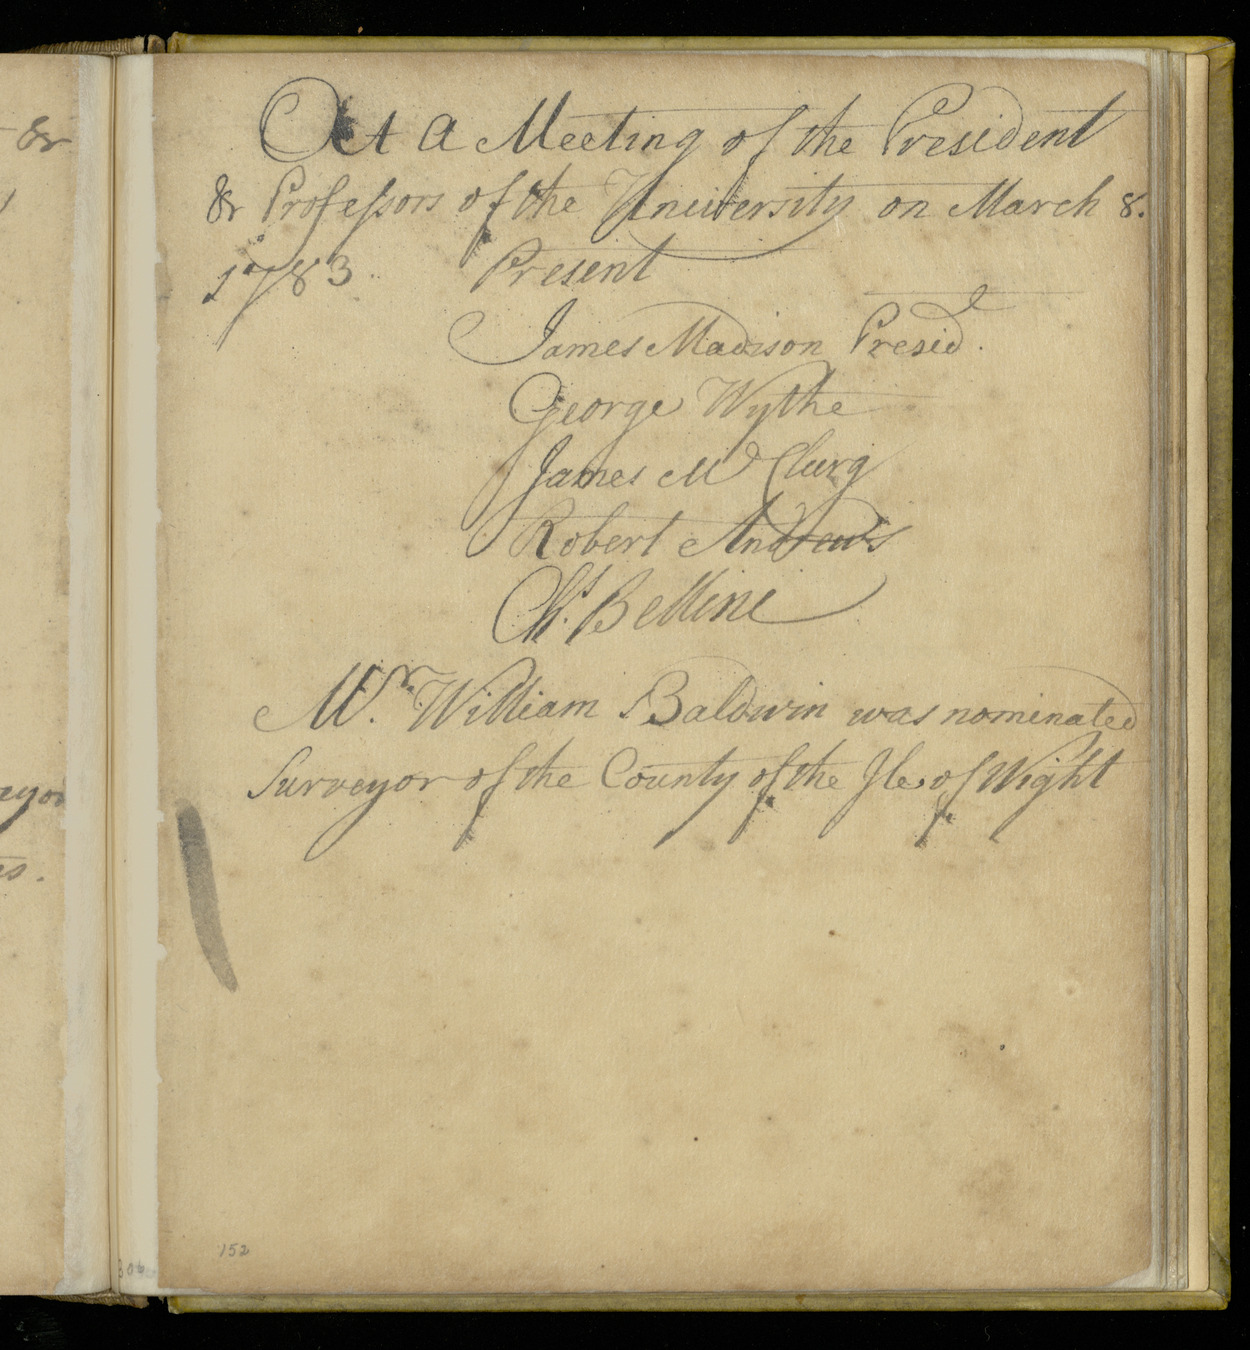 At a Meeting of the President
& Professors of the University on March 8.
1783. Present
James Madison Presid.d
George Wythe
James Mc Clurg
Robert Andrews
Chs. Bellini
Mr. William Baldwin was nominated
Surveyor of the County of the Ile of Wight
152
&